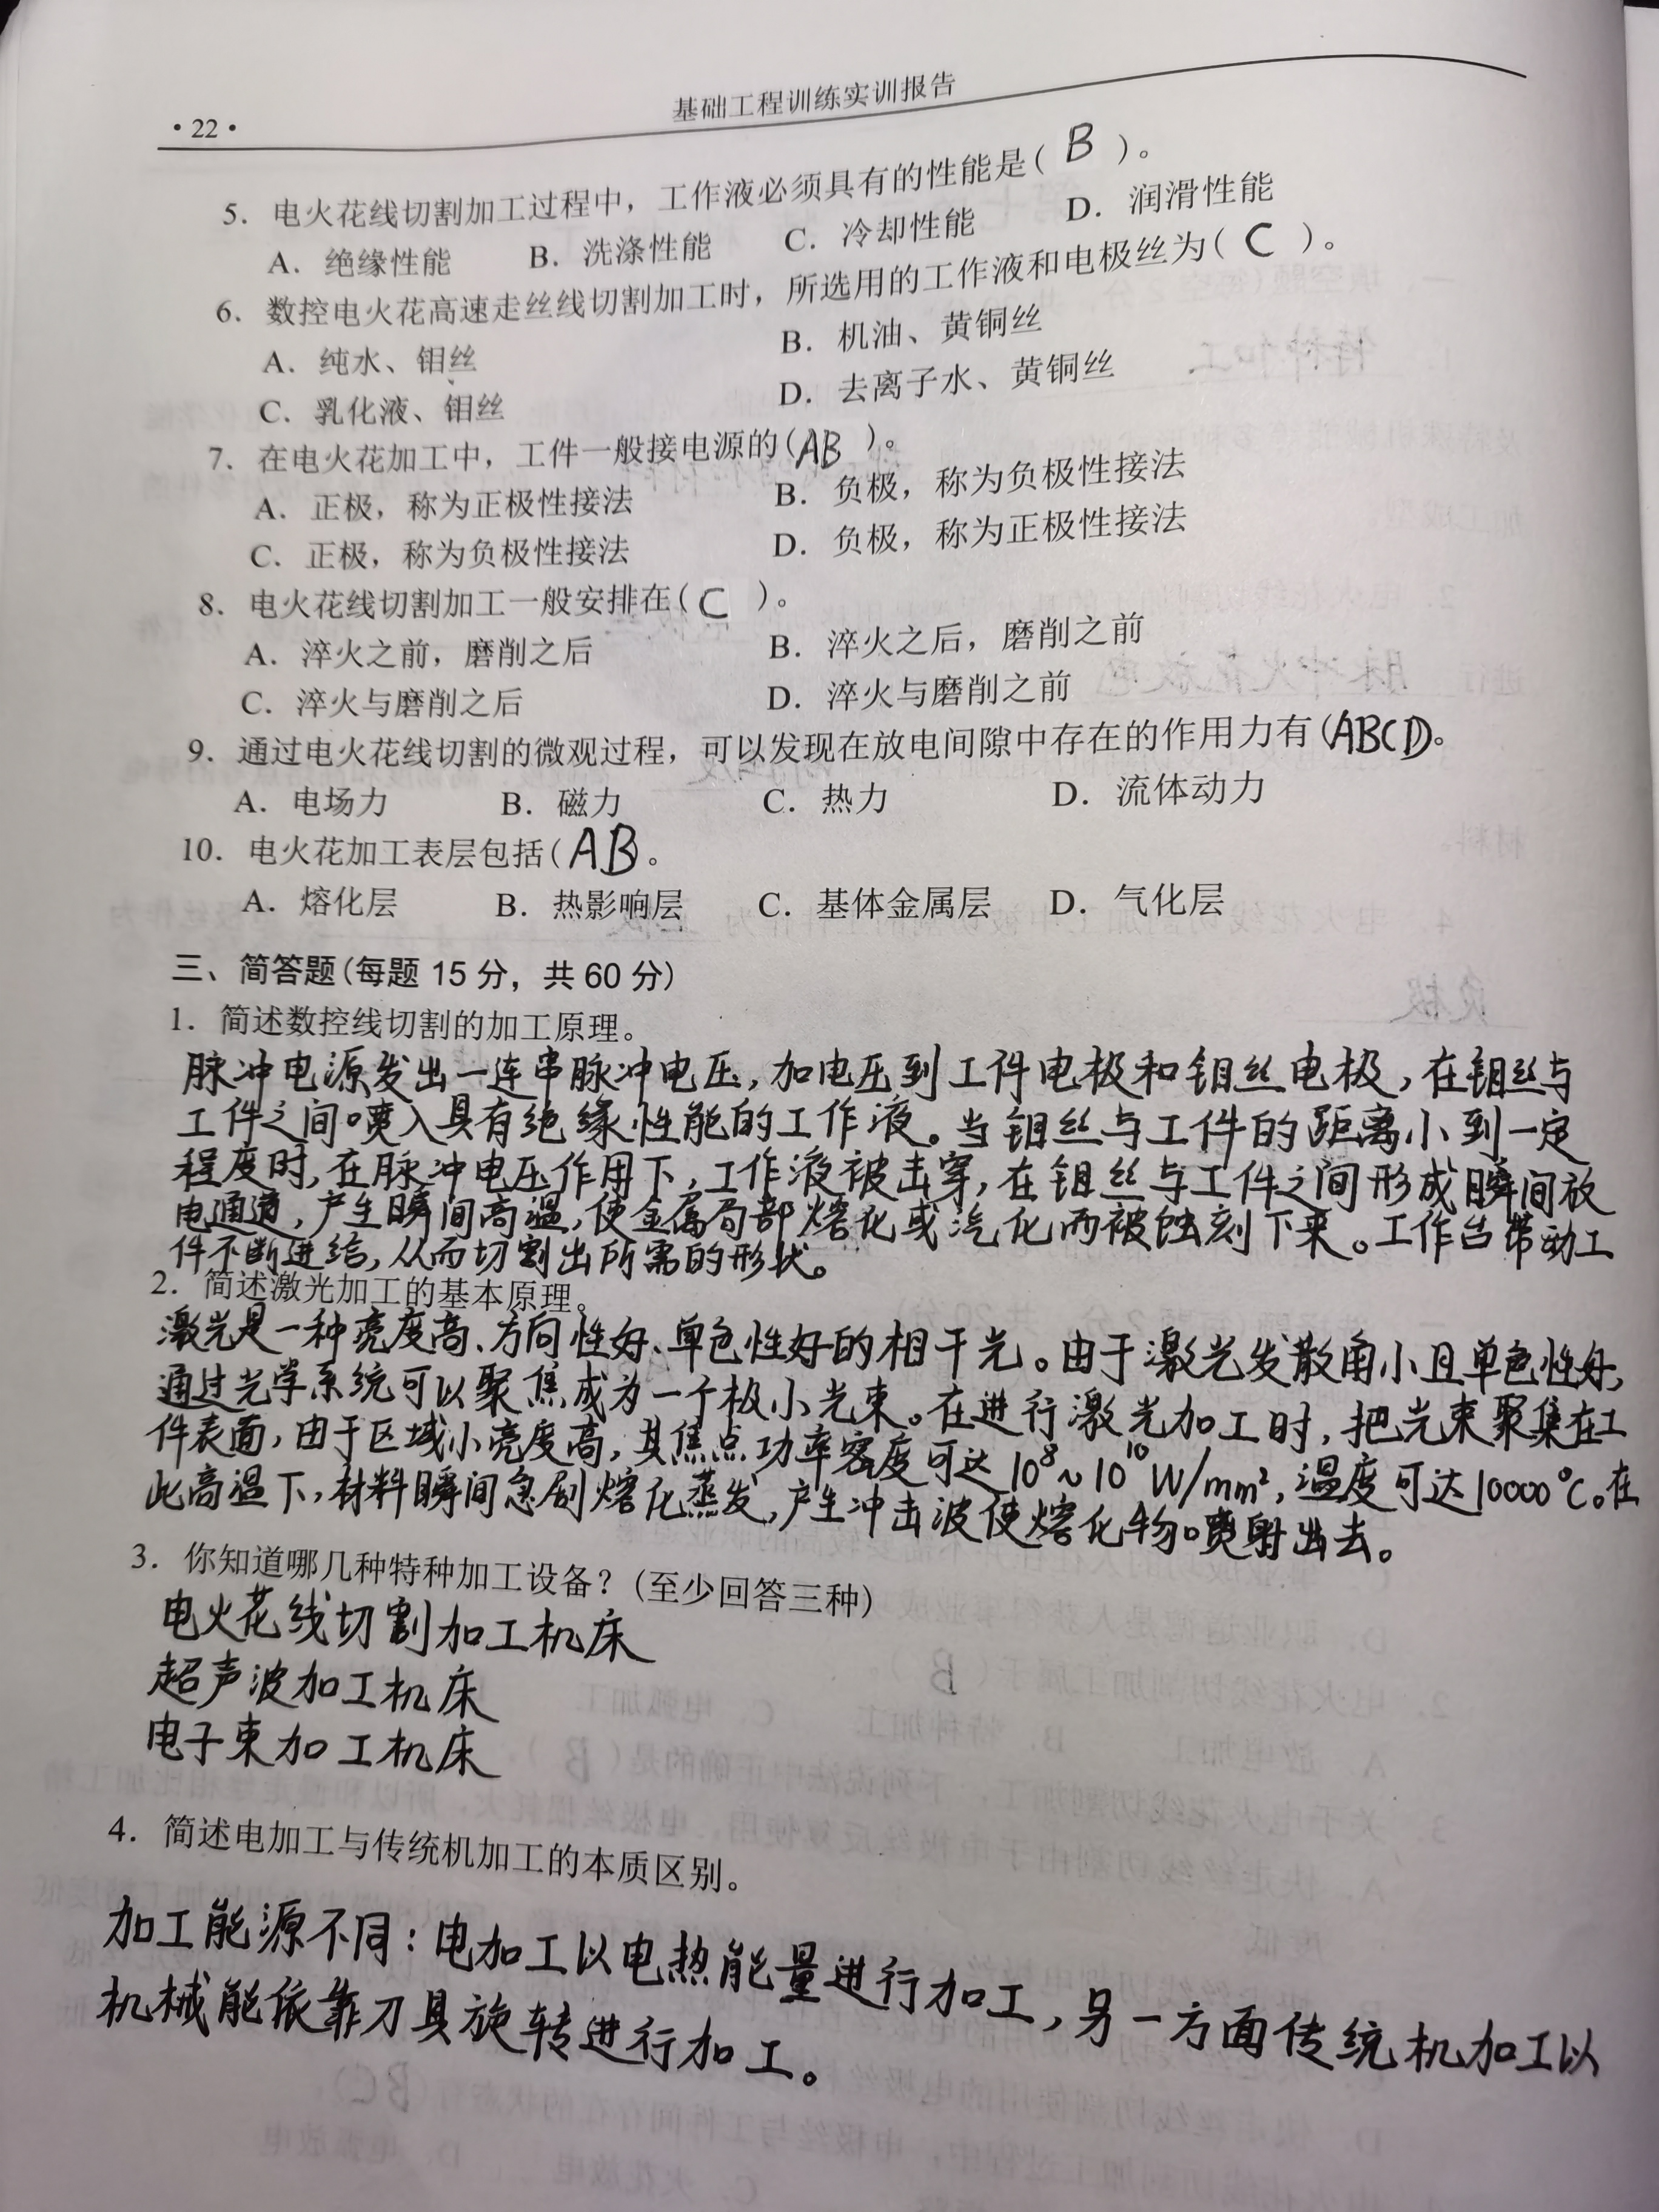 ·22·
基础工程训练实训报告
5. 电火花线切割加工过程中，工作液必须具有的性能是( B )。
A. 绝缘性能 B. 洗涤性能 C. 冷却性能 D. 润滑性能
6. 数控电火花高速走丝线切割加工时，所选用的工作液和电极丝为( C )。
A. 纯水、钼丝 B. 机油、黄铜丝
C. 乳化液、钼丝 D. 去离子水、黄铜丝
7. 在电火花加工中，工件一般接电源的(AB )。
A. 正极，称为正极性接法 B. 负极，称为负极性接法
C. 正极，称为负极性接法 D. 负极，称为正极性接法
8. 电火花线切割加工一般安排在( C )。
A. 淬火之前，磨削之后 B. 淬火之后，磨削之前
C. 淬火与磨削之后 D. 淬火与磨削之前
9. 通过电火花线切割的微观过程，可以发现在放电间隙中存在的作用力有(ABCD)。
A. 电场力 B. 磁力 C. 热力 D. 流体动力
10. 电火花加工表层包括(AB)。
A. 熔化层 B. 热影响层 C. 基体金属层 D. 气化层
三、简答题(每题 15 分，共 60 分)
1. 简述数控线切割的加工原理。
脉冲电源发出一连串脉冲电压，加电压到工件电极和钼丝电极，在钼丝与
工件之间喷入具有绝缘性能的工作液。当钼丝与工件的距离小到一定
程度时，在脉冲电压作用下，工作液被击穿，在钼丝与工件之间形成瞬间放
电通道，产生瞬间高温，使金属局部熔化或汽化而被蚀刻下来。工作台带动工
件不断进给，从而切割出所需的形状。
2. 简述激光加工的基本原理。
激光是一种亮度高、方向性好、单色性好的相干光。由于激光发散角小且单色性好，
通过光学系统可以聚焦成为一个极小光束。在进行激光加工时，把光束聚集在工
件表面，由于区域小亮度高，其焦点功率密度可达10⁸~10¹⁰W/mm²，温度可达10000℃。在
此高温下，材料瞬间急剧熔化蒸发，产生冲击波使熔化物喷射出去。
3. 你知道哪几种特种加工设备？(至少回答三种)
电火花线切割加工机床
超声波加工机床
电子束加工机床
4. 简述电加工与传统机加工的本质区别。
加工能源不同：电加工以电热能量进行加工，另一方面传统机加工以
机械能依靠刀具旋转进行加工。